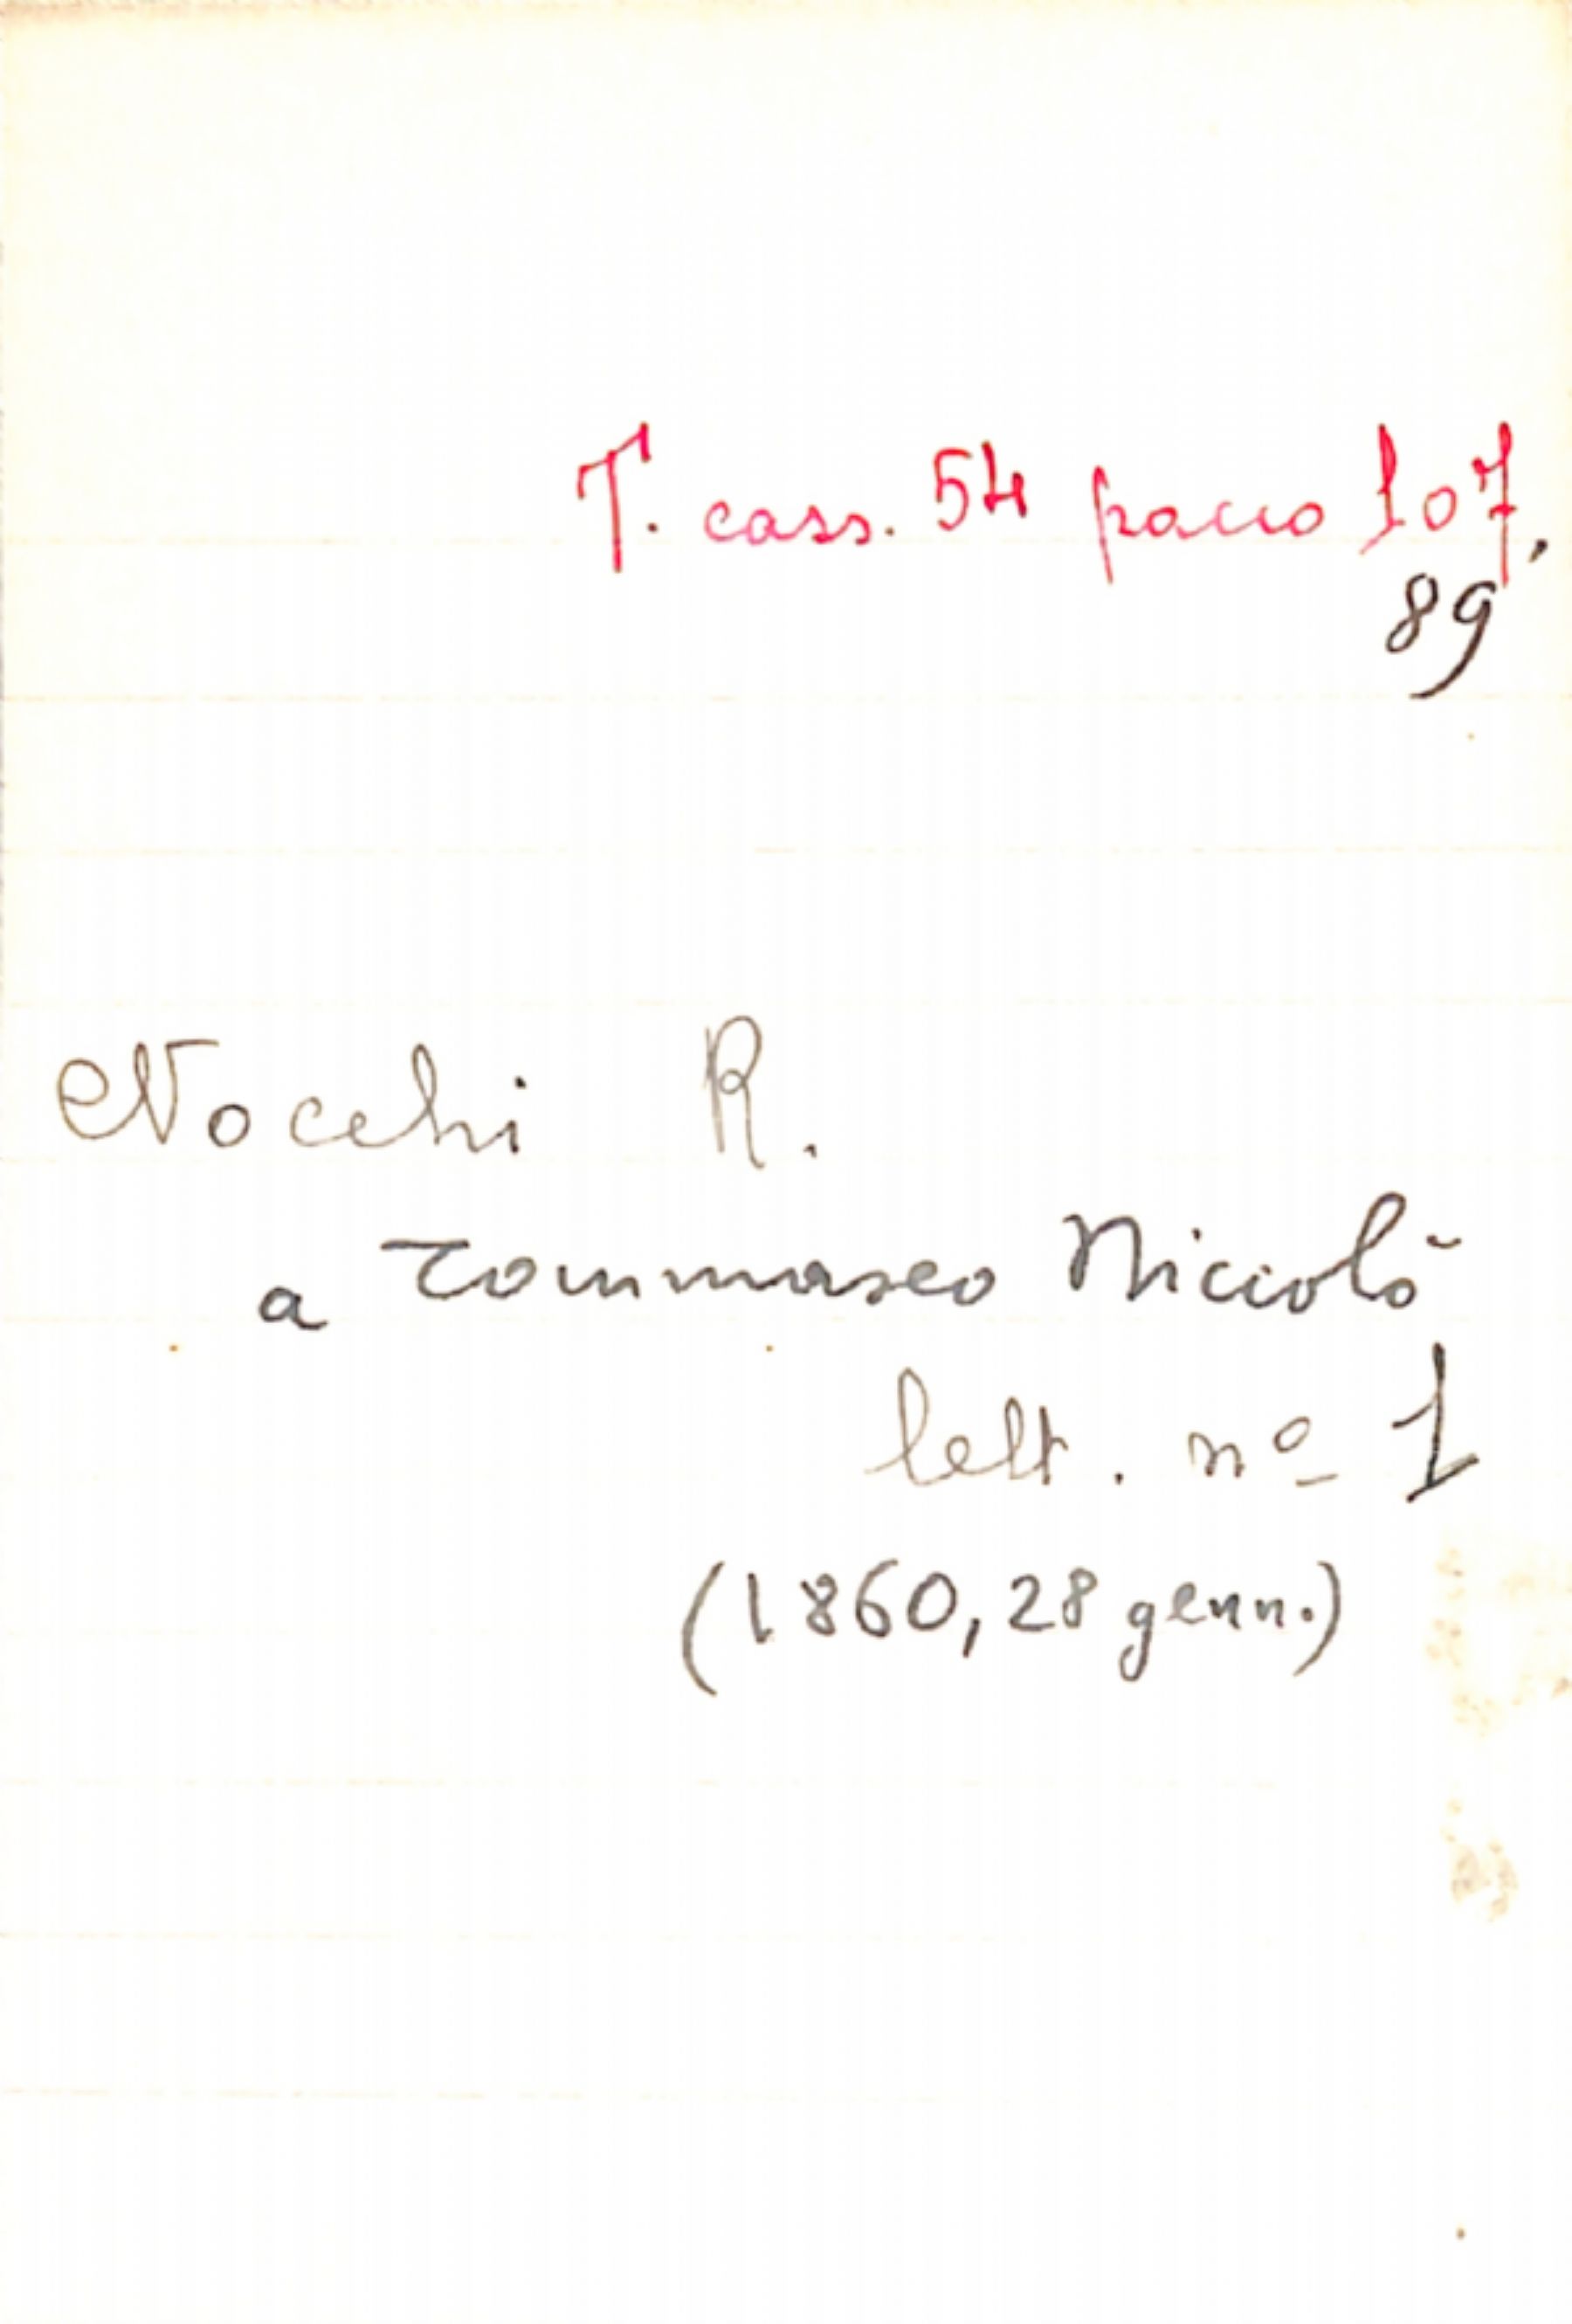 T. cass. 54 pacco 107,
89
Nocchi R.
a Tommaseo Niccolò
lett. nº 1
(1860, 28 genn.)